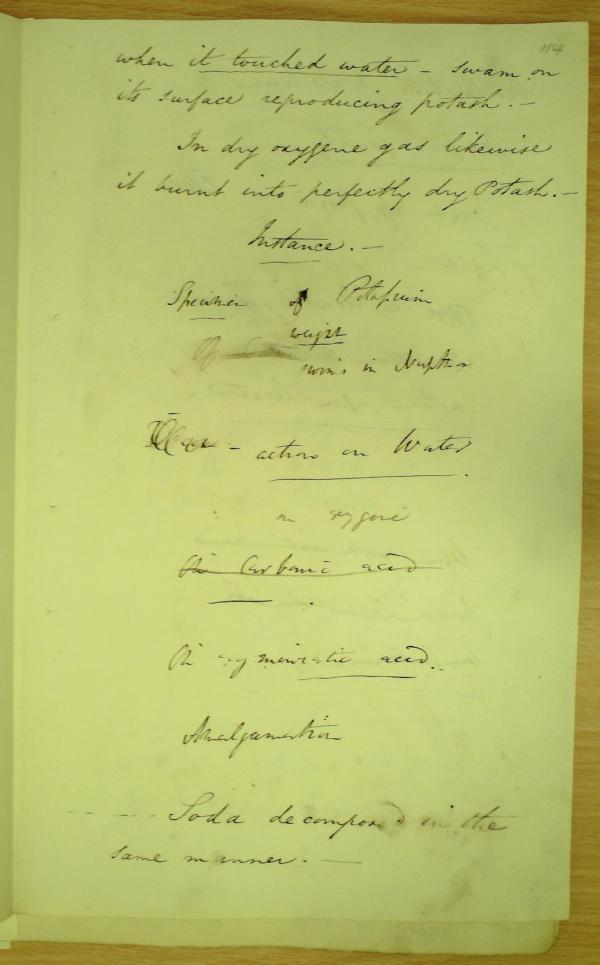 114
when it touched water - swam on
its surface reproducing potash. -
In dry oxygene gas likewise
it burnt into perfectly dry Potash. -
Instance. -
Specimen of Potassium
weight
swims in Naptha
- action on Water
in oxygene
In Carbonic acid
In oxymuriatic acid.
Amalgamation
Soda decomposed in the
same manner. -